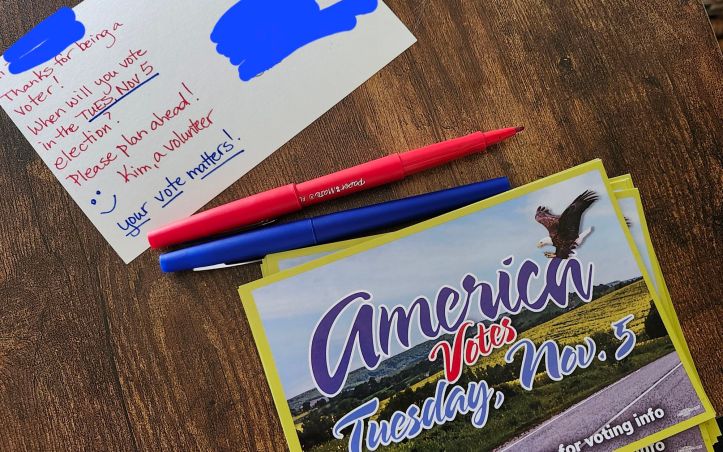 Thanks for being a
voter!
When will you vote
in the TUES Nov 5
election?
Please plan ahead!
Kim, a volunteer
your vote matters!
Paper Mate
America
Votes
Tuesday, Nov. 5
for voting info